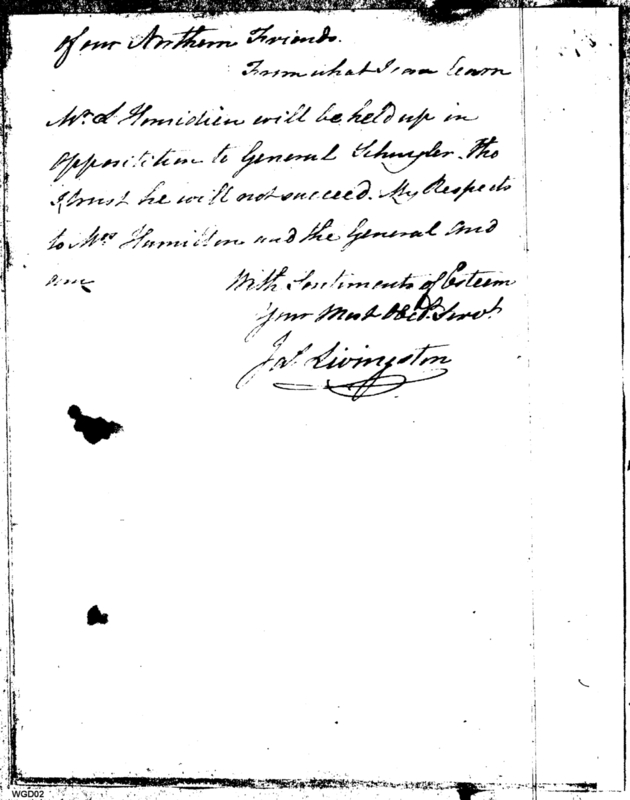 of our Northern Friends.
From what I can learn
Mr. L Homidieu will be held up in
opposition to General Schuyler. Tho
I trust he will not succeed. My Respects
to Mrs Hamilton and the General and
am
With Sentiments of Esteem
Your Most Obed. Servt.
Jas Livingston
WGD02